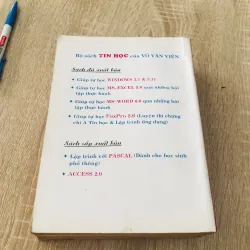 Bộ sách TIN HỌC của VÕ VĂN VIỆN
Sách đã xuất bản
• Giúp tự học WINDOWS 3.1 & 3.11
• Giúp tự học MS-EXCEL 5.0 qua những bài
tập thực hành
• Giúp tự học MS-WORD 6.0 qua những bài
tập thực hành
• Giúp tự học FoxPro 2.6 (Luyện thi chứng
chỉ A Tin học & Lập trình ứng dụng)
Sách sắp xuất bản
• Lập trình với PASCAL (Dành cho học sinh
phổ thông)
• ACCESS 2.0